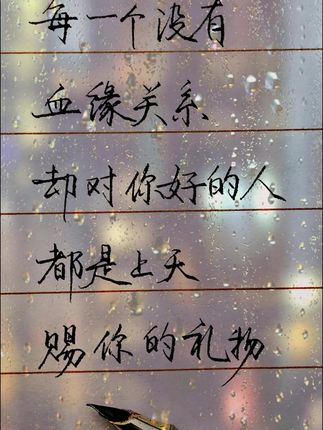 每一个没有
血缘关系
却对你好的人
都是上天
赐你的礼物